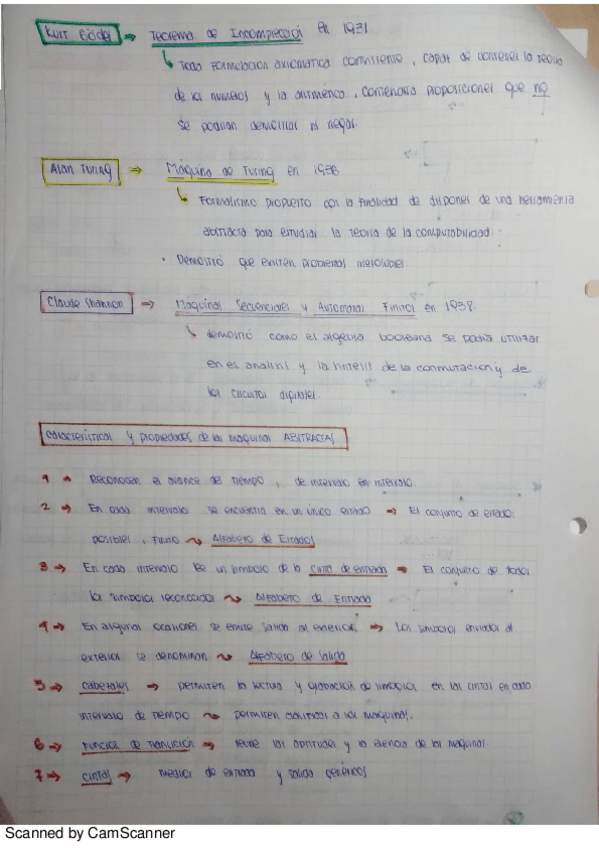 Kurt Gödel → Teorema de Incompleción en 1931
↳ Toda Formulación axiomática consistente, capaz de contener la teoría
de los números y la aritmética, contendrá proposiciones que no
se podrían demostrar ni negar.
Alan Turing ⇒ Máquina de Turing en 1936
↳ Formalismo propuesto con la finalidad de disponer de una herramienta
abstracta para estudiar la teoría de la computabilidad.
· Demostró que existen problemas irresolubles.
Claude Shannon → Maquinas Secuenciales y Automatas Finitos en 1938
↳ demostró como el algebra booleana se podia utilizar
en el analisis y la sintesis de la conmutacion y de
los circuitos digitales.
Características y propiedades de las maquinas ABSTRACTAS
1 → Reconocen el avance del tiempo, de intervalo en intervalo.
2 → En cada intervalo se encuentra en un único estado → El conjunto de estados
posibles, Finito ↝ Alfabeto de Estados
3 → En cada intervalo lee un simbolo de la cinta de entrada → El conjunto de todos
los simbolos reconocidos ↝ Alfabeto de Entrada
4 → En algunas ocasiones se emite salida al exterior. → Los simbolos enviados al
exterior se denominan ↝ Alfabeto de Salida
5 → Cabezales → permiten la lectura y grabación de simbolos en las cintas en cada
intervalo de tiempo ↝ permiten clasificar a las maquinas.
6 → Funcion de Transicion → reune las aptitudes y la esencia de las maquinas
7 → cintas → medios de entrada y salida genéricos
Scanned by CamScanner